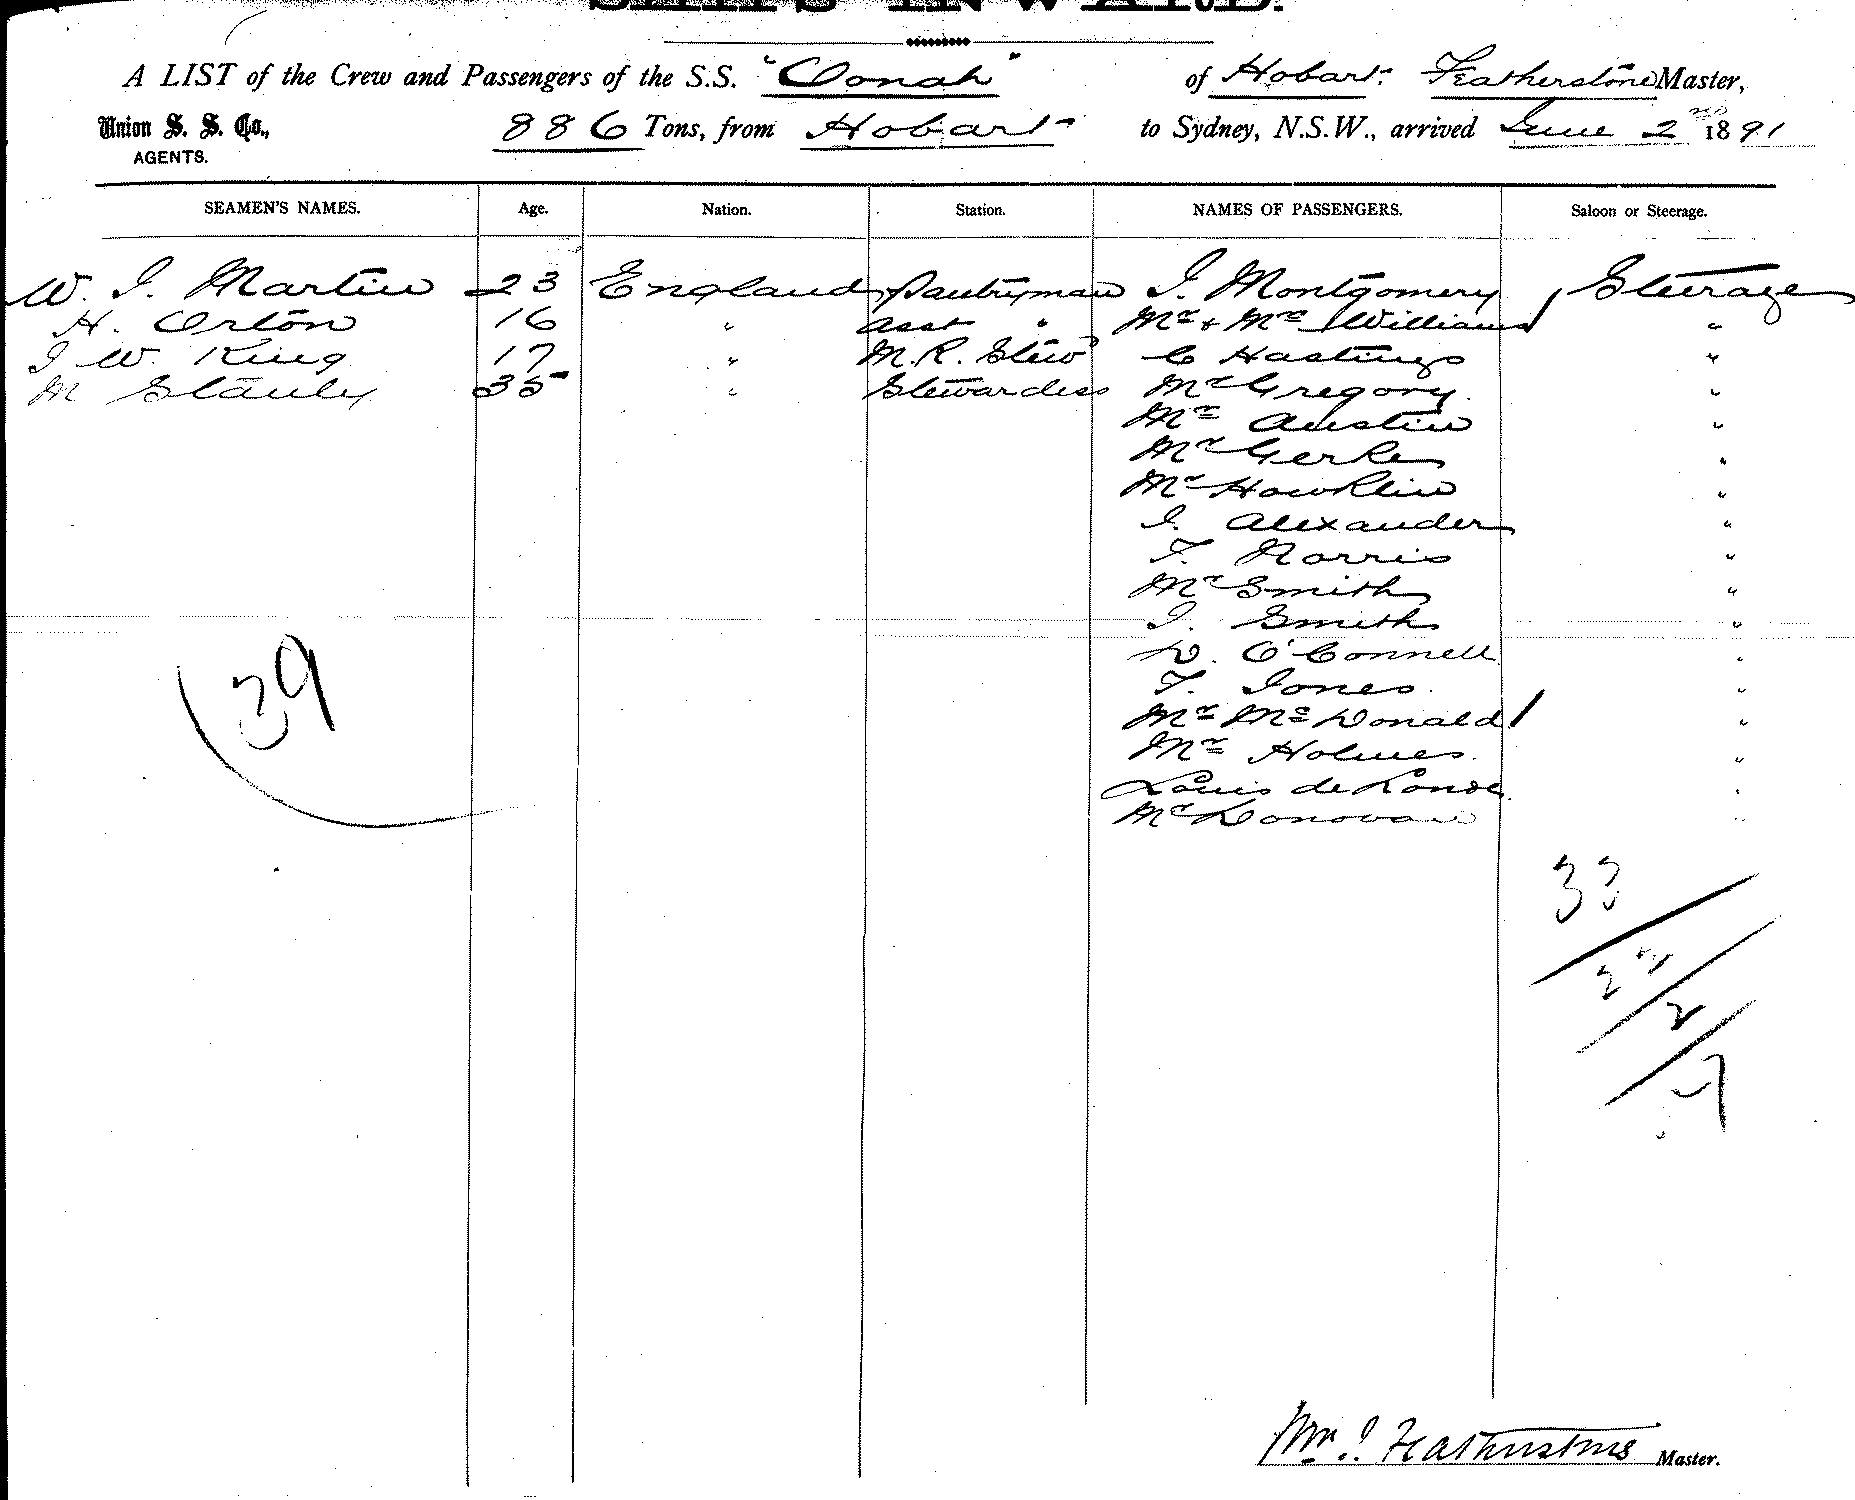 SHIPS INWARD.
A LIST of the Crew and Passengers of the S.S. "Oonah" of Hobart. Featherstone Master,
Union S. S. Co., 886 Tons, from Hobart to Sydney, N.S.W., arrived June 2nd 1891
AGENTS.
SEAMEN'S NAMES. Age. Nation. Station. NAMES OF PASSENGERS. Saloon or Steerage.
W. J. Martin 23 England Pantryman J. Montgomery Steerage
H. Orton 16 " Asst " Mr & Mrs Williams "
J W. King 17 " M. R. Stew C Hastings "
M Stanley 35 " Stewardess Mr Gregory "
Mr Austin "
Mr Gerke "
Mr Hawklin "
J. Alexander "
T. Norris "
Mr Smith "
J. Smith "
D. O'Connell "
T. Jones "
39
Mr McDonald "
Mr Holmes "
Louis de "
Mr Donovan "
33
2
Wm. J. Featherstone Master.